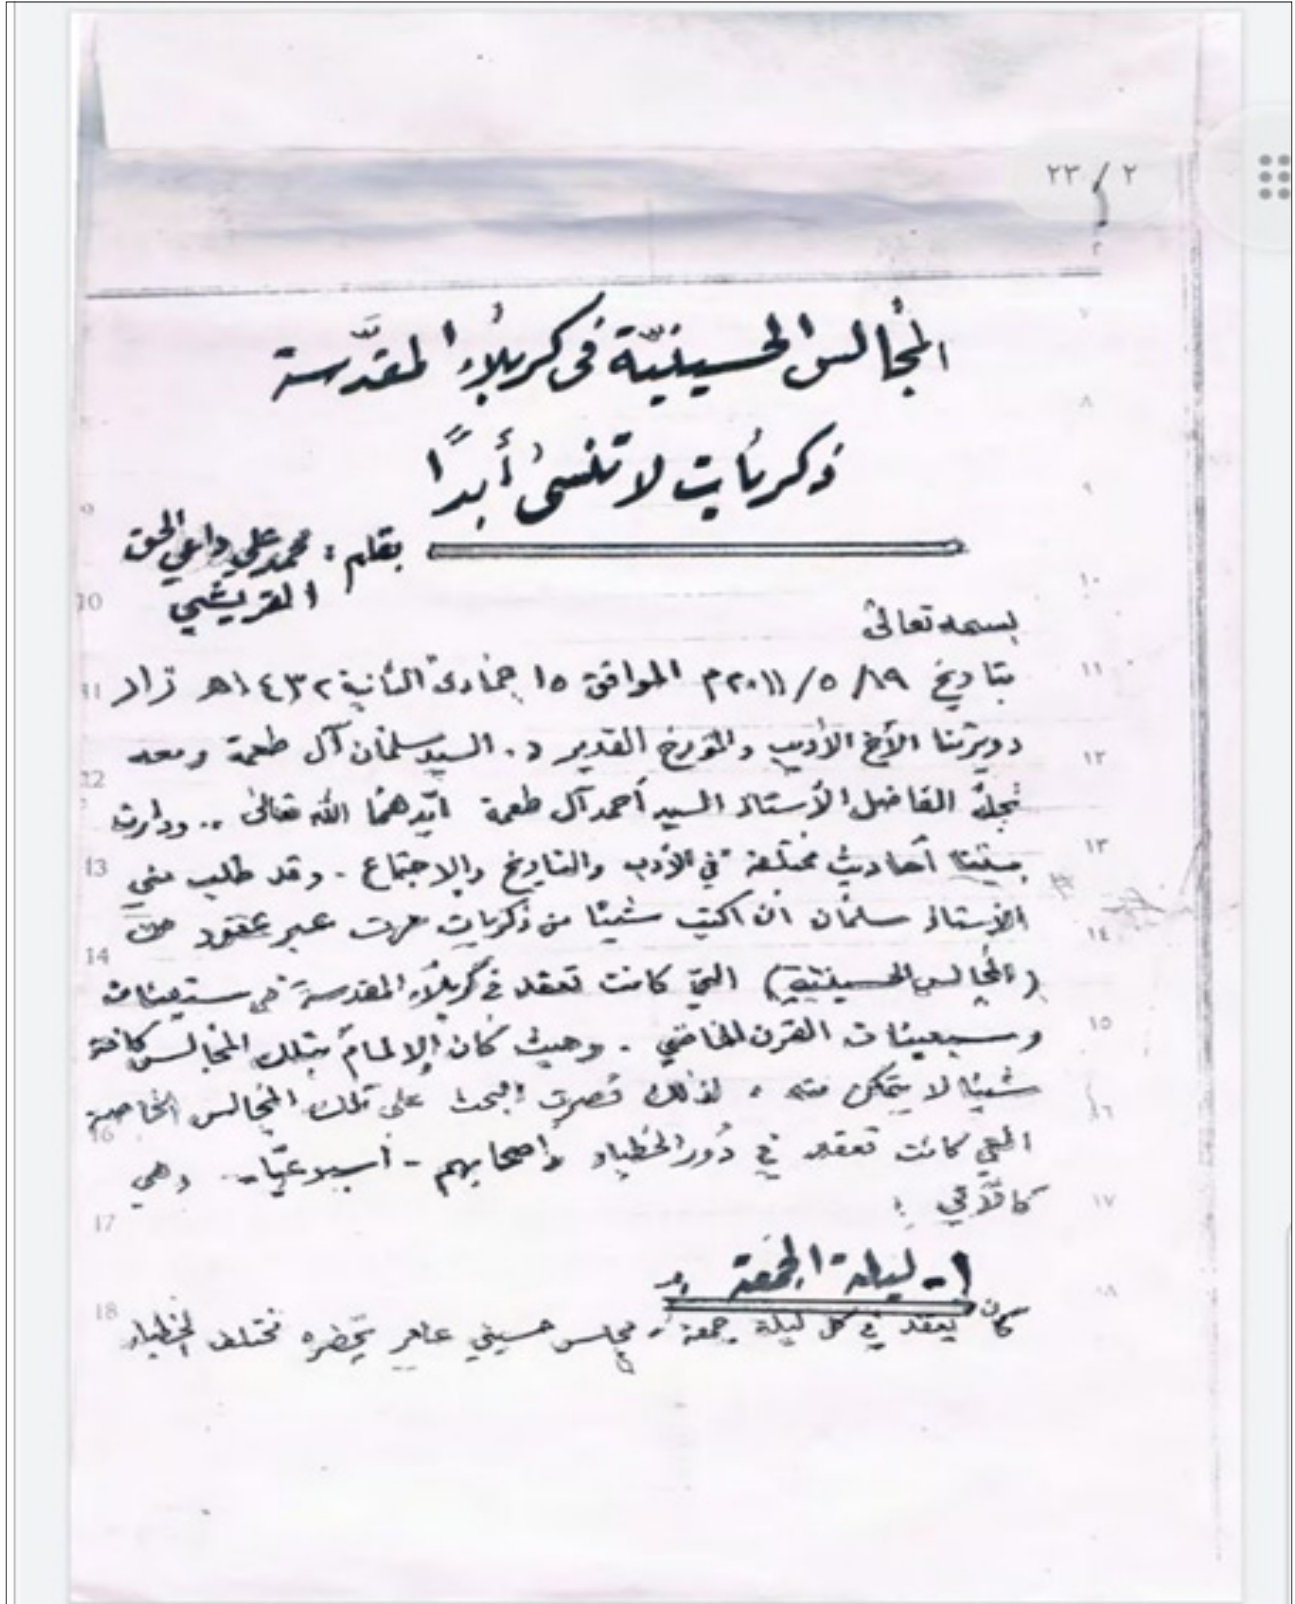 ٢ / ٢٣
المجالس الحسينيّة في كربلاء المقدَّسة
ذكريات لا تنسىٰ أبدًا
بقلم : محمد علي داعي الحق
القريشي
بسمه تعالىٰ
بتاريخ ١٩/ ٥/ ٢٠١١م الموافق ١٥ جمادى الثانية ١٤٣٢هـ زار
دويرتنا الأخ الأديب والمؤرخ القدير د. السيد سلمان آل طعمة ومعه
نجله الفاضل الأستاذ السيد أحمد آل طعمة أيّدهما الله تعالىٰ .. ودارت
بيننا أحاديث مختلفة في الأدب والتاريخ والاجتماع . وقد طلب مني
الأستاذ سلمان أن اكتب شيئًا من ذكريات مرت عبر عقود من
(المجالس الحسينيّة) التي كانت تعقد في كربلاء المقدسة في ستينات
وسبعينات القرن الماضي . وحيث كان الإلمام بتلك المجالس كافة
شيئًا لا يتمكن منه ، لذلك قصرت البحث على تلك المجالس الخاصة
التي كانت تعقد في دُور الخطباء وأصحابهم - أسبوعيًّا - وهي
كالآتي :
١- ليلة الجمعة :
كان يعقد في كل ليلة جمعة مجلس حسيني عامر يحضره مختلف الخطباء
10
١٠
11
١١
12
١٢
13
١٣
14
١٤
١٥
16
١٦
17
١٧
18
١٨
٨
9
٩